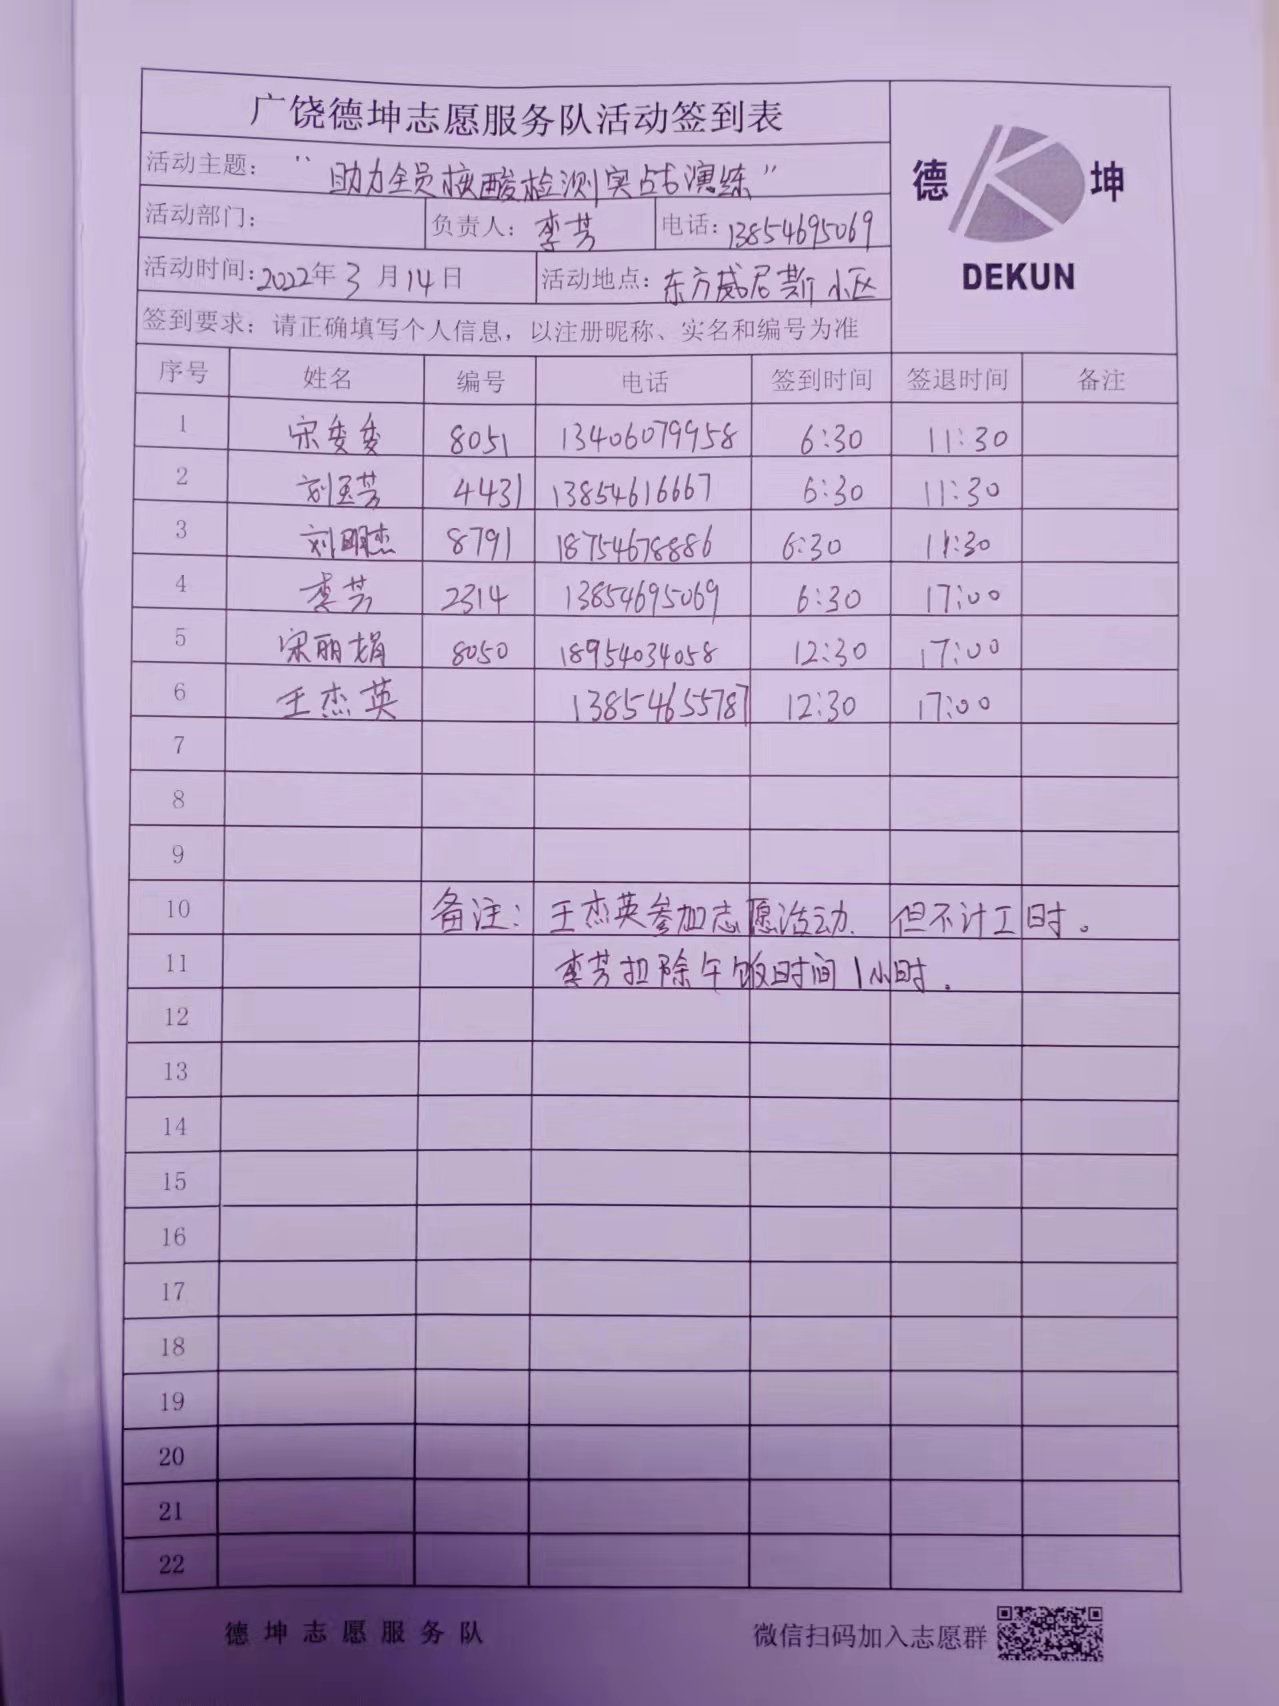 广饶德坤志愿服务队活动签到表
德 坤
DEKUN
活动主题：“助力全员核酸检测实战演练”
活动部门： 负责人：李芳 电话：13854695069
活动时间：2022年3月14日 活动地点：东方威尼斯小区
签到要求：请正确填写个人信息，以注册昵称、实名和编号为准
序号 姓名 编号 电话 签到时间 签退时间 备注
1 宋委委 8051 13406079958 6:30 11:30
2 刘玉芳 4431 13854616667 6:30 11:30
3 刘明杰 8791 18754678886 6:30 11:30
4 李芳 2314 13854695069 6:30 17:00
5 宋丽娟 8050 18954034058 12:30 17:00
6 王杰英 13854655787 12:30 17:00
7
8
9
10 备注：王杰英参加志愿活动. 但不计工时。
11 李芳扣除午饭时间1小时.
12
13
14
15
16
17
18
19
20
21
22
德坤志愿服务队 微信扫码加入志愿群